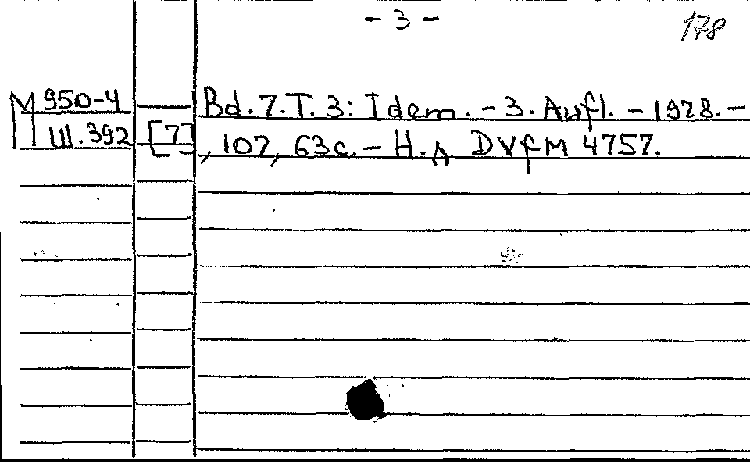 - 3 -
178
М 950-4
Ш.392 [7]
Bd. 7. T. 3: Idem. - 3. Aufl. - 1978. -
, 107, 63c. - H.A DVfM 4757.